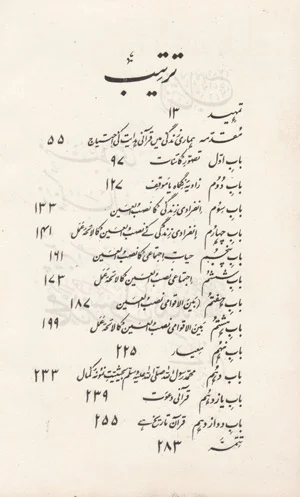 ترتیب
تمہید ۱۳
مقدمہ ہماری زندگی میں قرآنی ہدایت کی احتیاج ۵۵
باب اوّل تصورِ کائنات ۹۷
باب دوم زاویۂ نگاہ یا موقف ۱۲۷
باب سوم انفرادی زندگی کا نصب العین ۱۳۳
باب چہارم انفرادی زندگی کے نصب العین کا لائحہ عمل ۱۴۱
باب پنجم حیاتِ اجتماعی کا نصب العین ۱۶۱
باب ششم اجتماعی نصب العین کا لائحہ عمل ۱۷۳
باب ہفتم بین الاقوامی نصب العین ۱۸۷
باب ہشتم بین الاقوامی نصب العین کا لائحہ عمل ۱۹۹
باب نہم معیار ۲۲۵
باب دہم محمد رسول اللہ صلی اللہ علیہ وسلم بحیثیت نمونۂ کمال ۲۳۳
باب یازدہم قرآنی دعوت ۲۳۹
باب دوازدہم قرآن تاریخ ہے ۲۵۵
تتمہ ۲۸۳